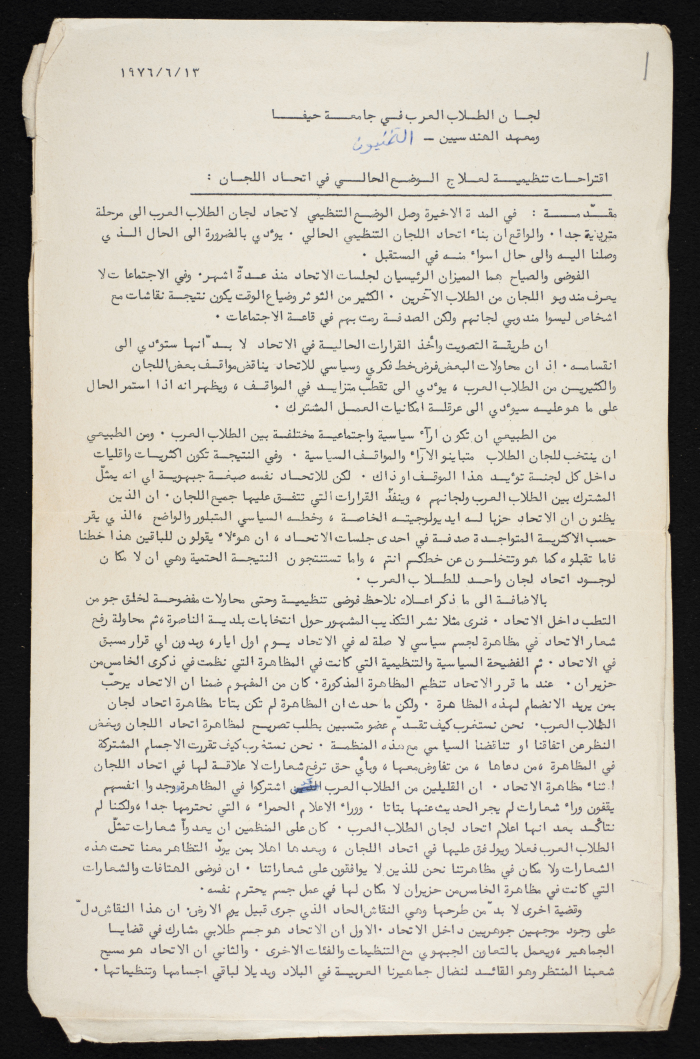 ١٩٧٦/٦/١٣
لجان الطلاب العرب في جامعة حيفا
ومعهد الهندسيين - التخنيون
اقتراحات تنظيمية لعلاج الوضع الحالي في اتحاد اللجان :
مقدّمة : في المدة الاخيرة وصل الوضع التنظيمي لاتحاد لجان الطلاب العرب الى مرحلة
متردّية جدا . والواقع ان بناء اتحاد اللجان التنظيمي الحالي . يوءدي بالضرورة الى الحال الذي
وصلنا اليه والى حال اسواء منه في المستقبل .
الفوضى والصياح هما المميزان الرئيسيان لجلسات الاتحاد منذ عدةّ اشهر . وفي الاجتماعات لا
يعرف مندوبو اللجان من الطلاب الآخرين . الكثير من التوتر وضياع الوقت يكون نتيجة نقاشات مع
اشخاص ليسوا مندوبي لجانهم ولكن الصدفة رمت بهم في قاعة الاجتماعات .
ان طريقة التصويت وأخذ القرارات الحالية في الاتحاد لا بدّ انها ستوءدي الى
انقسامه . اذ ان محاولات البعض فرض خط فكري وسياسي للاتحاد يناقض مواقف بعض اللجان
والكثيرين من الطلاب العرب ، يوءدي الى تقطّب متزايد في المواقف ، ويظهر انه اذا استمر الحال
على ما هو عليه سيوءدي الى عرقلة امكانيات العمل المشترك .
من الطبيعي ان تكون آراء سياسية واجتماعية مختلفة بين الطلاب العرب . ومن الطبيعي
ان ينتخب للجان الطلاب متباينو الآراء والمواقف السياسية . وفي النتيجة تكون اكثريات واقليات
داخل كل لجنة توءيد هذا الموقف او ذاك . لكن للاتحاد نفسه صبغة جبهوية اي انه يمثّل
المشترك بين الطلاب العرب ولجانهم ، وينفذّ القرارات التي تتفق عليها جميع اللجان . ان الذين
يظنون ان الاتحاد حزبا له ايديولوجيته الخاصة ، وخطه السياسي المتبلور والواضح ، الذي يقر
حسب الاكثرية المتواجدة صدفة في احدى جلسات الاتحاد ، ان هوءلاء يقولون للباقين هذا خطنا
فاما تقبلوه كما هو وتتخلون عن خطكم انتم ، واما تستنتجون النتيجة الحتمية وهي ان لا مكان
لوجود اتحاد لجان واحد للطلاب العرب .
بالاضافة الى ما ذكر اعلاه نلاحظ فوضى تنظيمية وحتى محاولات مفضوحة لخلق جو من
التطب داخل الاتحاد . فنرى مثلا نشر التكذيب المشهور حول انتخابات بلدية الناصرة ، ثم محاولة رفع
شعار الاتحاد في مظاهرة لجسم سياسي لا صلة له في الاتحاد يوم اول ايار ، وبدون اي قرار مسبق
في الاتحاد . ثم الفضيحة السياسية والتنظيمية التي كانت في المظاهرة التي نظمت في ذكرى الخامس من
حزيران . عند ما قرر الاتحاد تنظيم المظاهرة المذكورة . كان من المفهوم ضمنا ان الاتحاد يرحّب
بمن يريد الانضمام لهذه المظاهرة . ولكن ما حدث ان المظاهرة لم تكن بتاتا مظاهرة اتحاد لجان
الطلاب العرب . نحن نستغرب كيف تقدّم عضو متسبين بطلب تصريح لمظاهرة اتحاد اللجان وبغض
النظر عن اتفاقنا او تناقضنا السياسي مع هذه المنظمة . نحن نستغرب كيف تقررت الاجسام المشتركة
في المظاهرة ، من دعاها ، من تفاوض معها ، وبأي حق ترفع شعارات لا علاقة لها في اتحاد اللجان
اثناء مظاهرة الاتحاد . ان القليلين من الطلاب العرب اشتركوا في المظاهرة وجدوا انفسهم
يقفون وراء شعارات لم يجر الحديث عنها بتاتا . ووراء الاعلام الحمراء ، التي نحترمها جدا ، ولكننا لم
نتأكّد بعد انها اعلام اتحاد لجان الطلاب العرب . كان على المنظمين ان يعدوا شعارات تمثّل
الطلاب العرب فعلا ويوافق عليها في اتحاد اللجان ، وبعدها اهلا بمن يودّ التظاهر معنا تحت هذه
الشعارات ولا مكان في مظاهرتنا نحن للذين لا يوافقون على شعاراتنا . ان فوضى الهتافات والشعارات
التي كانت في مظاهرة الخامس من حزيران لا مكان لها في عمل جسم يحترم نفسه .
وقضية اخرى لا بدّ من طرحها وهي النقاش الحاد الذي جرى قبيل يوم الارض . ان هذا النقاش دلّ
على وجود موجهين جوهريين داخل الاتحاد . الاول ان الاتحاد هو جسم طلّابي مشارك في قضايا
الجماهير ، ويعمل بالتعاون الجبهوي مع التنظيمات والفئات الاخرى . والثاني ان الاتحاد هو مسيح
شعبنا المنتظر وهو القائد لنضال جماهيرنا العربية في البلاد وبديلا لباقي اجسامها وتنظيماتها .